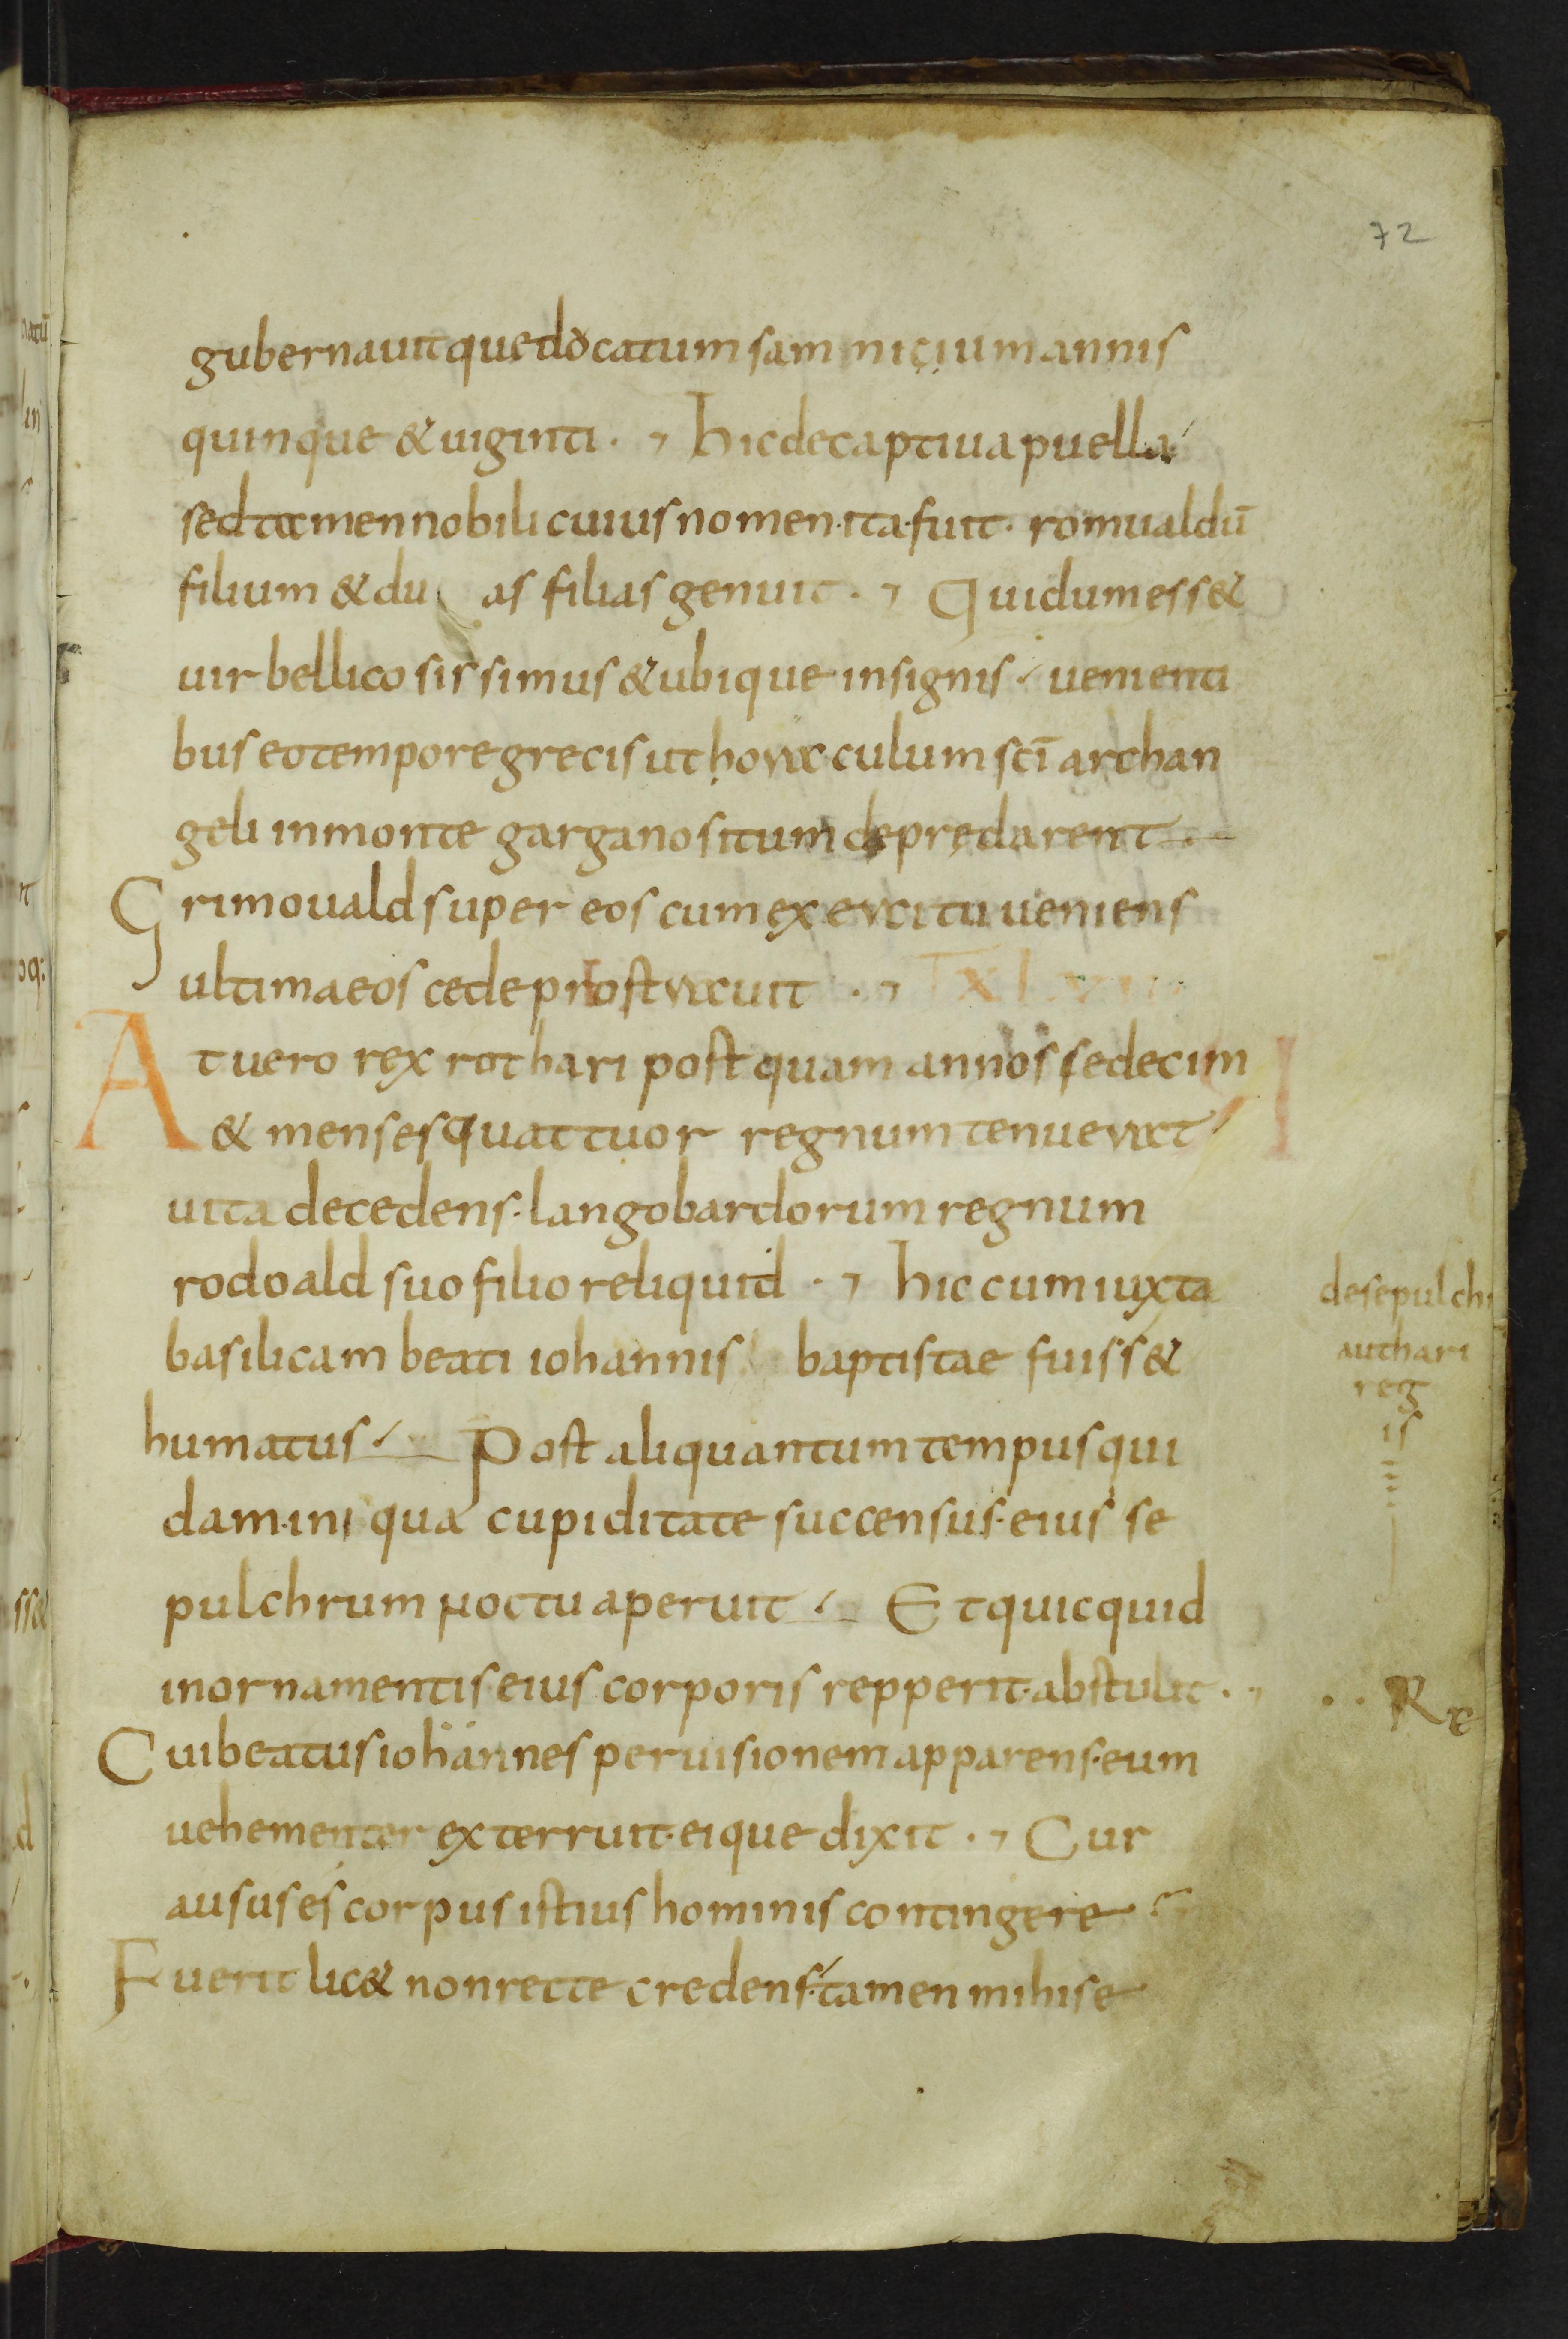 72
gubernauitque docatum samniçium annis
quinque & uiginti · Hic de captiua puella
sed tamen nobili cuius nomen · ita · fuit · romualdū
filium & du as filias genuit · Qui dum ess&
uir bellicosissimus & ubique insignis uenienti
bus eo tempore grecis ut horaculum scī archan
geli in monte gargano situm depredarent
Grimouald super eos cum exercitu ueniens
ultima eos cede prostrauit ·
At uero rex rothari postquam annos sedecim
& menses quattuor regnum tenuerat
uita decedens · langobardorum regnum
rodoald suo filio reliquid · Hic cum iuxta
basilicam beati iohannis baptistae fuiss&
humatus Post aliquantum tempus qui
dam · iniqua cupiditate succensus · eius se
pulchrum noctu aperuit Et quicquid
in ornamentis eius corporis repperit · abstulit ·
Cui beatus iohannes per uisionem apparens · eum
uehementer exterruit · eique dixit · Cur
ausus es corpus istius hominis contingere
Fuerit lic& non recte credens · tamen mihi se
de sepulchr
authari
reg
is